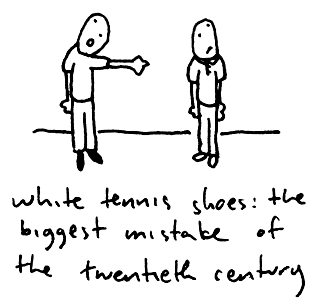 white tennis shoes: the
biggest mistake of
the twentieth century